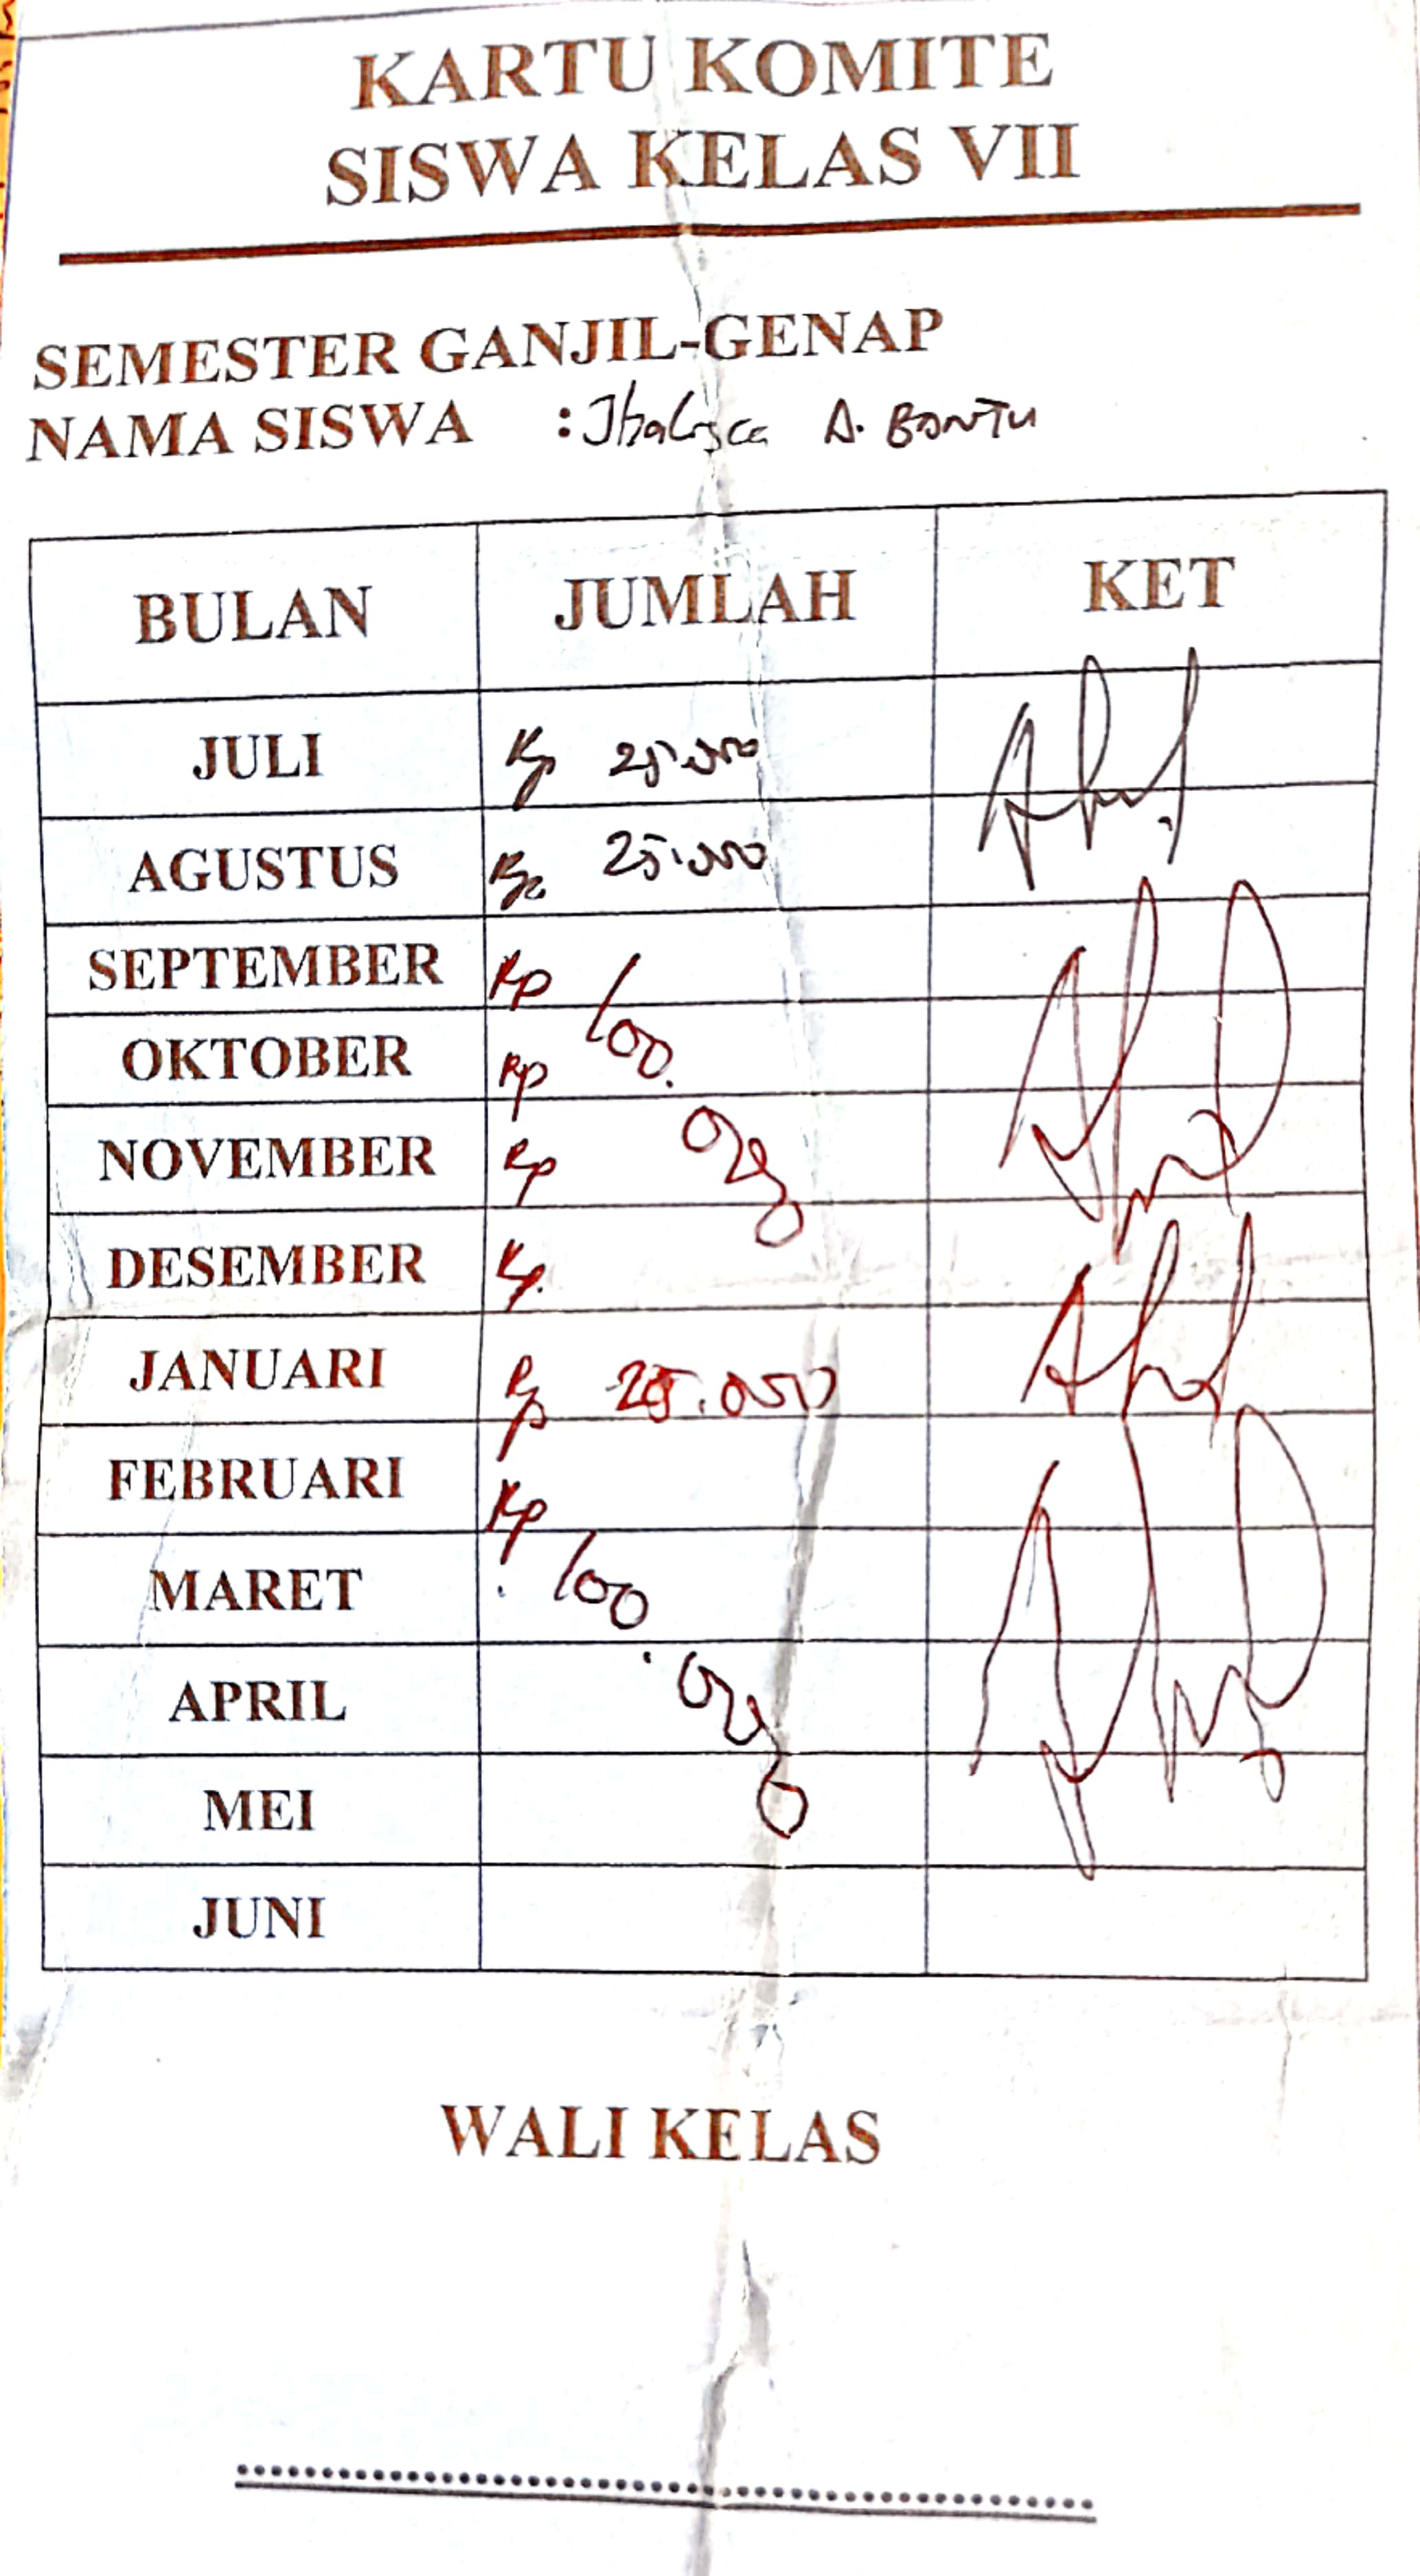 KARTU KOMITE
SISWA KELAS VII
SEMESTER GANJIL-GENAP
NAMA SISWA : A. BANTU
BULAN JUMLAH KET
JULI Rp 25.000
AGUSTUS Rp 25.000
SEPTEMBER Rp 100.
OKTOBER Rp
NOVEMBER Rp 000
DESEMBER Rp.
JANUARI Rp 25.000
FEBRUARI Rp
MARET 100
APRIL .000
MEI
JUNI
WALI KELAS